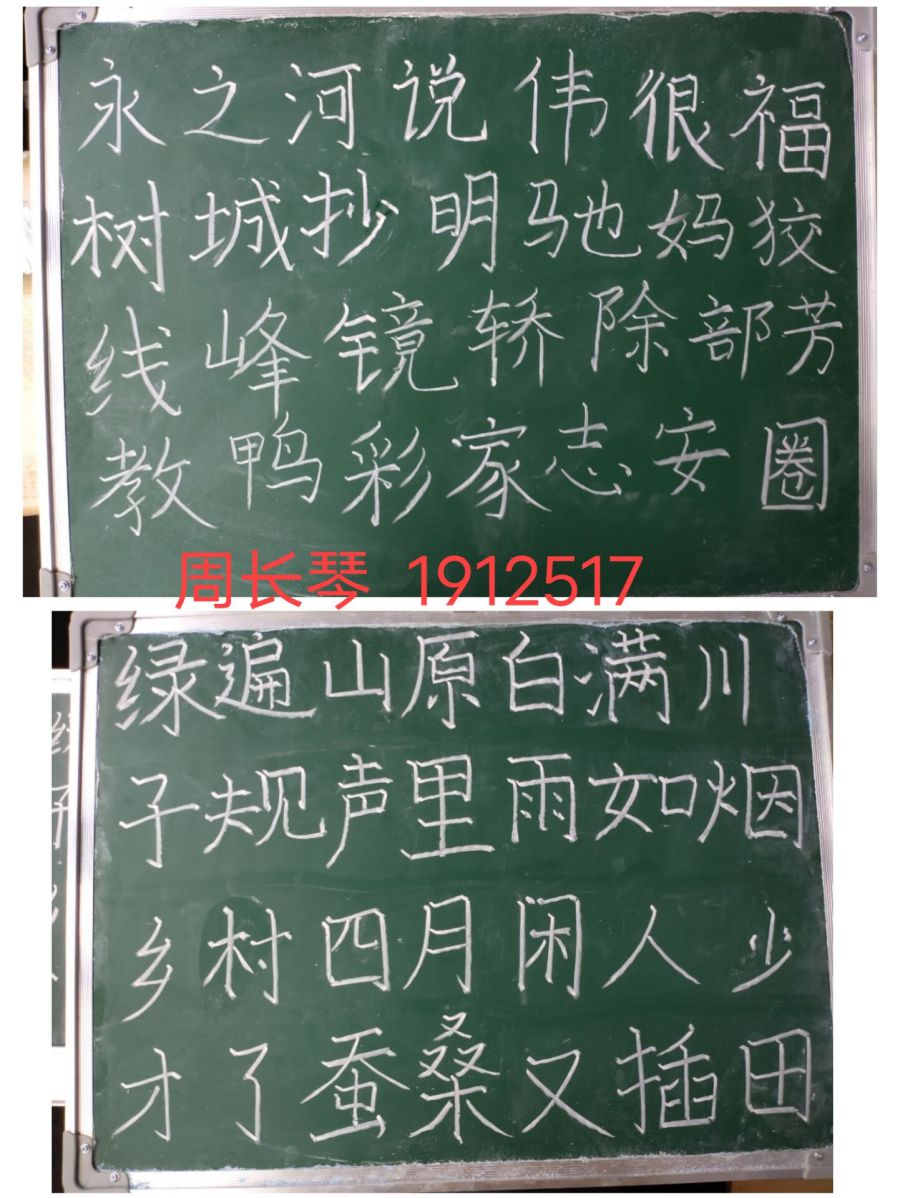 永之河说伟很福
树城抄明驰妈狡
线峰镜轿除部芳
教鸭彩家志安圈
周长琴 1912517
绿遍山原白满川
子规声里雨如烟
乡村四月闲人少
才了蚕桑又插田